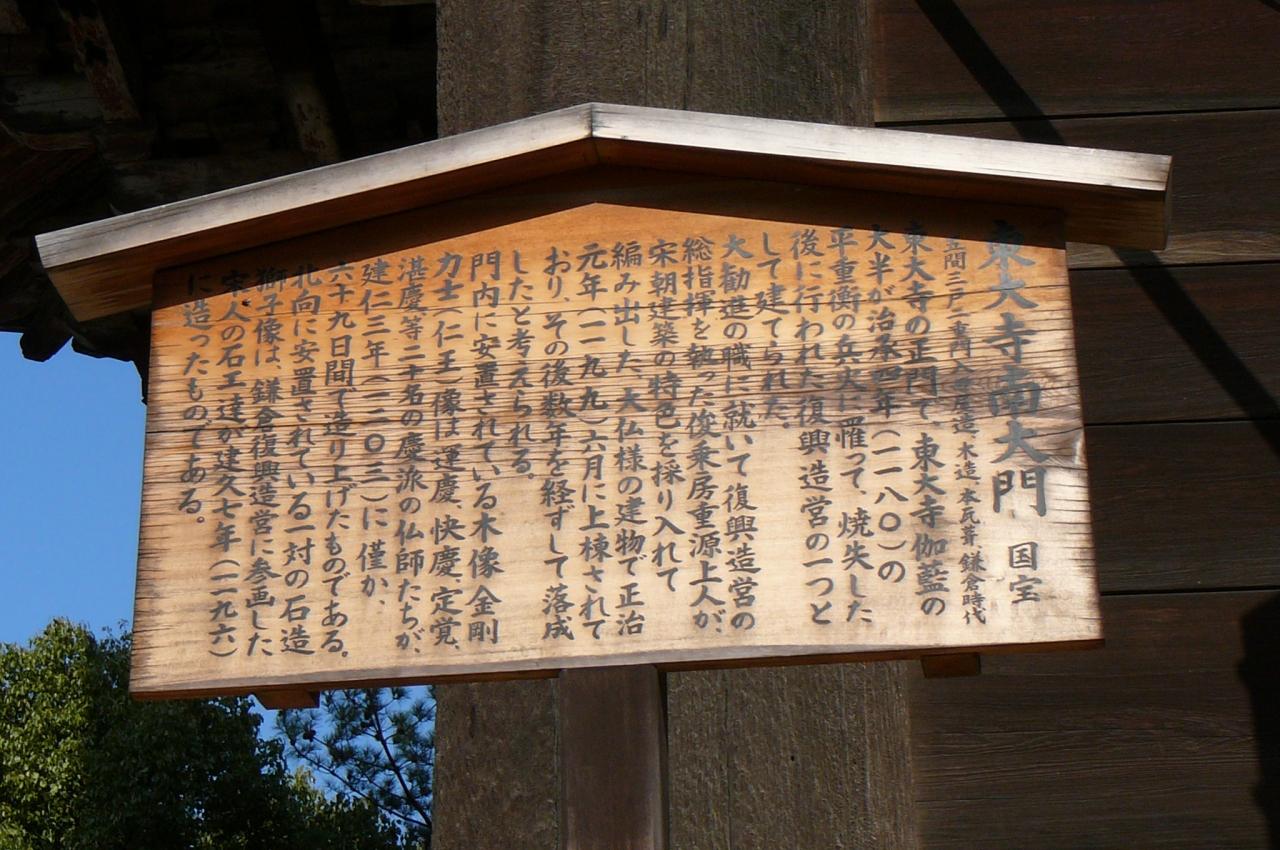 東大寺南大門 国宝
五間三戸二重門 入母屋造、木造 本瓦葺 鎌倉時代
東大寺の正門で、東大寺伽藍の
大半が治承四年（一一八〇）の
平重衡の兵火に罹って、焼失した
後に行われた復興造営の一つと
して建てられた。
大勧進の職に就いて復興造営の
総指揮を執った俊乗房重源上人が、
宋朝建築の特色を採り入れて
編み出した、大仏様の建物で正治
元年（一一九九）六月に上棟されて
おり、その後数年を経ずして落成
したと考えられる。
門内に安置されている木像金剛
力士（仁王）像は運慶、快慶、定覚、
湛慶等二十名の慶派の仏師たちが、
建仁三年（一二〇三）に僅か、
六十九日間で造り上げたものである。
北向に安置されている一対の石造
獅子像は、鎌倉復興造営に参画した
宋人の石工達が建久七年（一一九六）
に造ったものである。